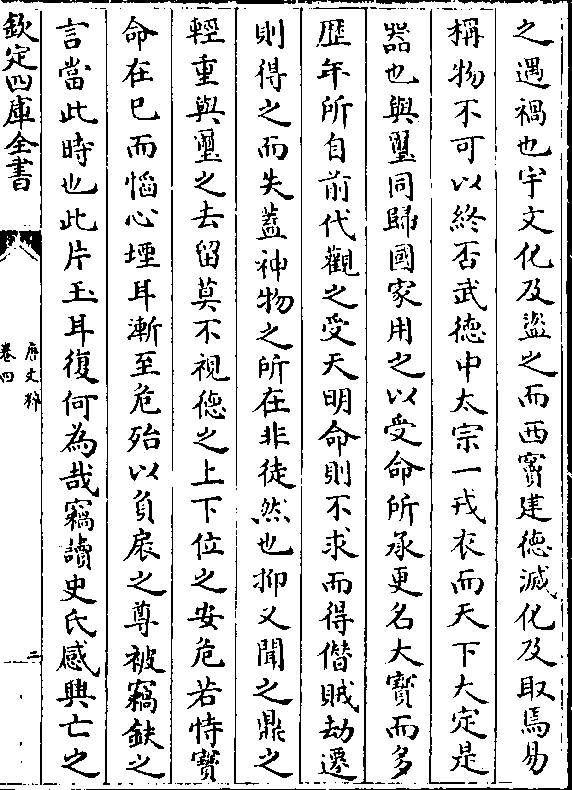 之遇禍也宇文化及盜之而西竇建德滅化及取焉易
稱物不可以終否武德中太宗一戎衣而天下大定是
器也與璽同歸國家用之以受命所承更名大寳而多
歴年所自前代觀之受天明命則不求而得僭賊劫遷
則得之而失蓋神物之所在非徒然也抑又聞之鼎之
輕重與璽之去留莫不視德之上下位之安危若恃寳
命在巳而慆心堙耳漸至危殆以負扆之尊被竊鈇之
言當此時也此片玉耳復何為哉竊讀史氏感興亡之
欽定四庫全書
唐文粹
卷四
二